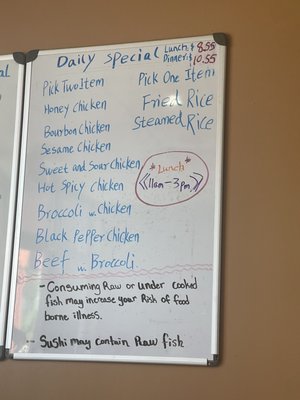 al
Daily special Lunch $ 8.55
Dinner $ 10.55
Pick Two Item
Pick One Item
Honey Chicken
Fried Rice
Bourbon Chicken
Steamed Rice
Sesame Chicken
Sweet and Sour Chicken
*Lunch*
Hot Spicy Chicken
《11am-3pm》
Broccoli w. Chicken
Black Pepper Chicken
Beef w. Broccoli
- Consuming Raw or under cooked
fish may increase your Risk of food
borne illness.
- Sushi may contain Raw fish